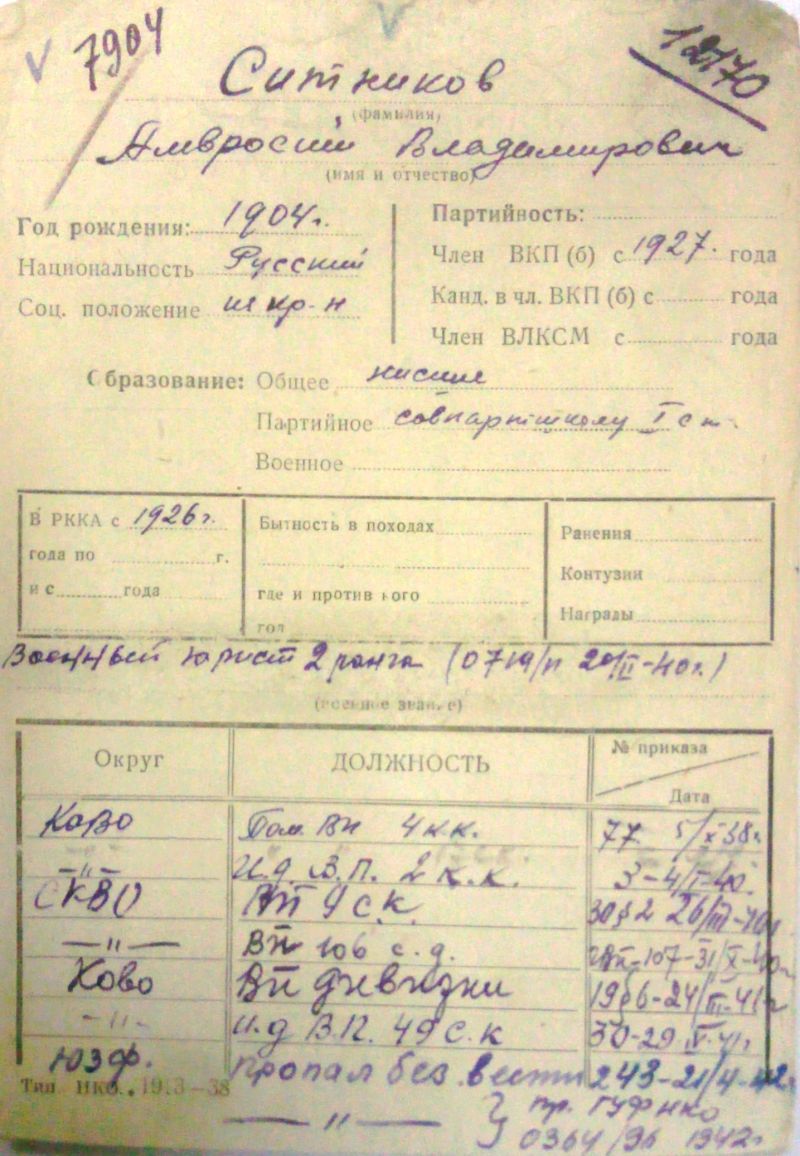 7904
12170
Ситников
(фамилия)
Амвросий Владимирович
(имя и отчество)
Год рождения: 1904г.
Национальность Русский
Соц. положение из кр-н
Партийность:
Член ВКП (б) с 1927. года
Канд. в чл. ВКП (б) с года
Член ВЛКСМ с года
Образование: Общее низшее
Партийное совпартшколу I ст.
Военное
В РККА с 1926 г.
года по г.
и с года
Бытность в походах
где и против кого
год
Ранения
Контузии
Награды
Военный юрист 2 ранга (0719/п 20/II-40г.)
(военное звание)
Округ ДОЛЖНОСТЬ № приказа
Дата
КОВО Пом. ВП 4 к.к. 77 5/X 38г.
-"- И.д. В.П. 2 к.к. 3-4/I-40.
СКВО ВП 9 с.к. 30 § 2 26/III-40г
-"- ВП 106 с.д. 107-31/X-40г
Ково ВП дивизии 196-24/III-41г
-"- И.д В.П. 49 с.к 30-29 41г
ЮЗФ. Пропал без вести 243-21/4-42г
Тип. НКО. 19.3-38
-"- } пр. ГУФНКО
0364/ 1942г.